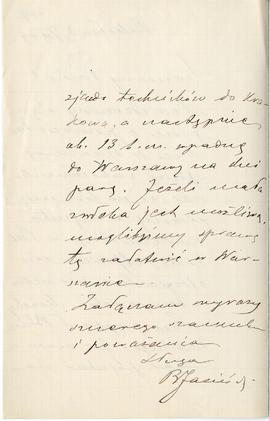 zjazd techników do Kra-
kowa, a następnie
ok. 13 b.m. wpadnę
do Warszawy na dni
parę. Jeżeli mała
zwłoka jest możliwa,
moglibyśmy sprawę
tę załatwić w War-
szawie.
Załączam wyrazy
szczerego szacunku
i poważania
sługa